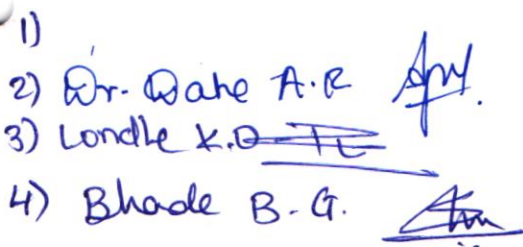 1)
2) Dr. Dahe A.R
3) Londhe K.D
4) Bhade B.G.